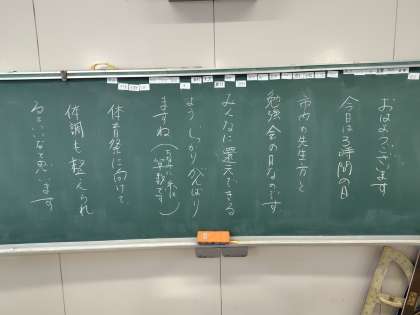 おはようございます
今日は3時間の日
市内の先生方と
勉強会の日なのです
みんなに還元できる
よう しっかりがんばり
ますね（
算数です）
体育祭に向けて
体調も整えられ
るといいなと思います